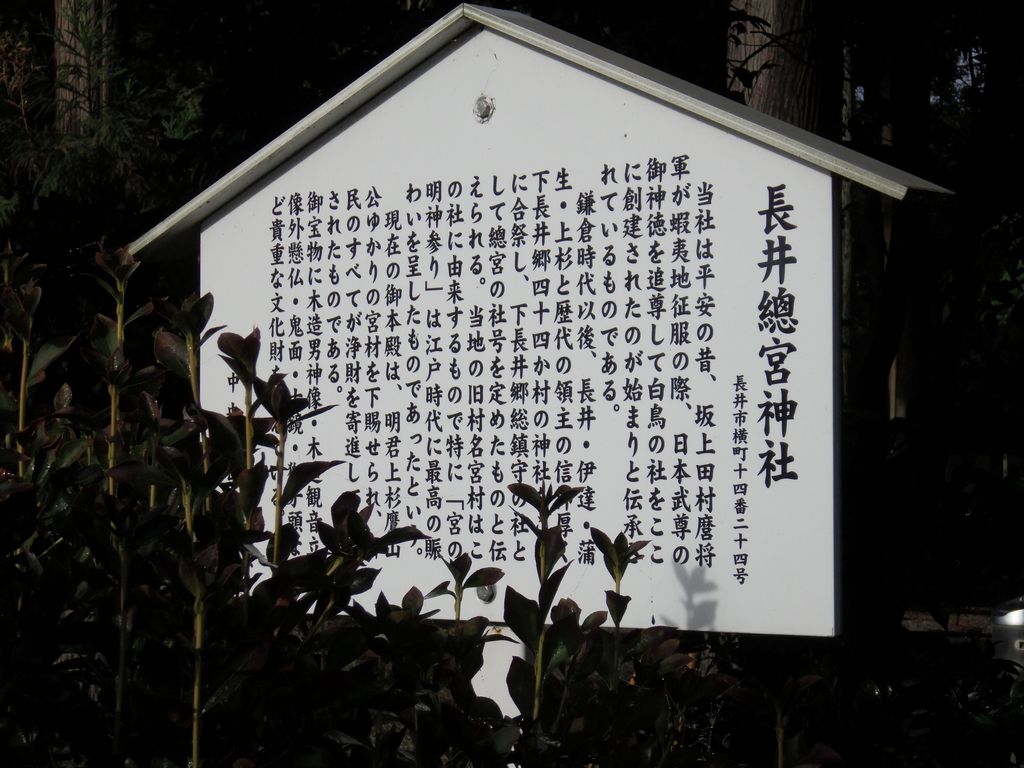 長井總宮神社
長井市横町十四番二十四号
当社は平安の昔、坂上田村麿将
軍が蝦夷地征服の際、日本武尊の
御神徳を追尊して白鳥の社をここ
に創建されたのが始まりと伝承
れているものである。
鎌倉時代以後、長井・伊達・蒲
生・上杉と歴代の領主の信 厚
下長井郷四十四か村の神社
に合祭し、下長井郷総鎮守の社と
して總宮の社号を定めたものと伝
えられる。当地の旧村名宮村はこ
の社に由来するもので特に「宮の
明神参り」は江戸時代に最高の賑
わいを呈したものであったとい 。
現在の御本殿は、明君上杉鷹山
公ゆかりの宮材を下賜せられ、
民のすべてが浄財を寄進し
されたものである。
御宝物に木造男神像・木 観音立
像外懸仏・鬼面・ 鏡・ 頭
ど貴重な文化財
中